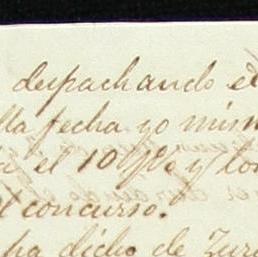 despachando el
lla fecha yo mism
el 10 y
concurso.
ha dicho de Zur